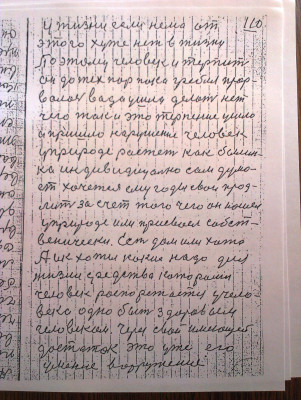 110
у жизни сели немо от
этого хуже нет в жизни
Поэтому человек и терпит
он до тех пор пока гребля прор
валас вада ушла делат нет
чего так и это терпение ушло
и пришло нарушение человек
у природе растет как былин
ка индивидуално сам дума
ет хочется ему годы свои прод
лит за счет того чего он нашел
у природе или присвоел собст
венически. Ест дом или хата
А их хоты каких надо для
жизни средства которыми
человек распоретается у чело
века одно быт здоровым
человеком через свой имеющей
достаток это уже его
умение вооружение